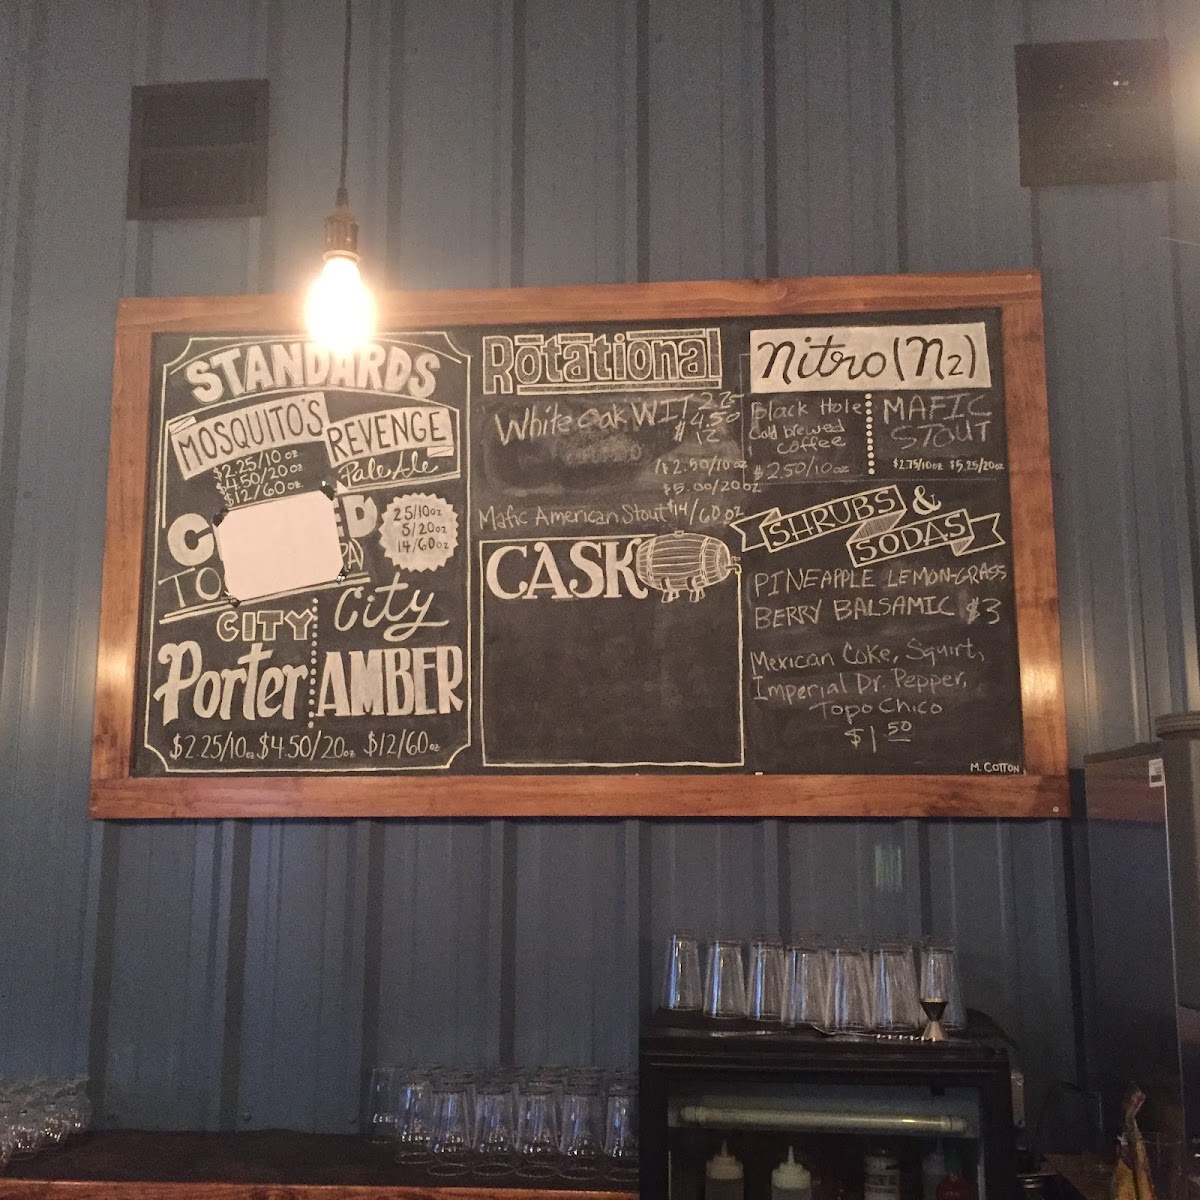 STANDARDS
MOSQUITO'S
REVENGE
Pale Ale
$2.25/10 oz
$4.50/20 oz
$12/60 oz
25/10oz
5/20oz
14/60oz
CITY
Porter
City
AMBER
$2.25/10oz $4.50/20oz $12/60oz
Rotational
White Oak WIT
2.25
4.50
$12
$2.50/10oz
$5.00/20oz
Mafic American Stout $14/60oz
CASK
Nitro (N2)
Black Hole
Cold brewed
coffee
$2.50/10oz
MAFIC
STOUT
$2.75/10oz $5.25/20oz
SHRUBS &
SODAS
PINEAPPLE LEMON-GRASS
BERRY BALSAMIC $3
Mexican Coke, Squirt,
Imperial Dr. Pepper,
Topo Chico
$1 50
M. COTTON